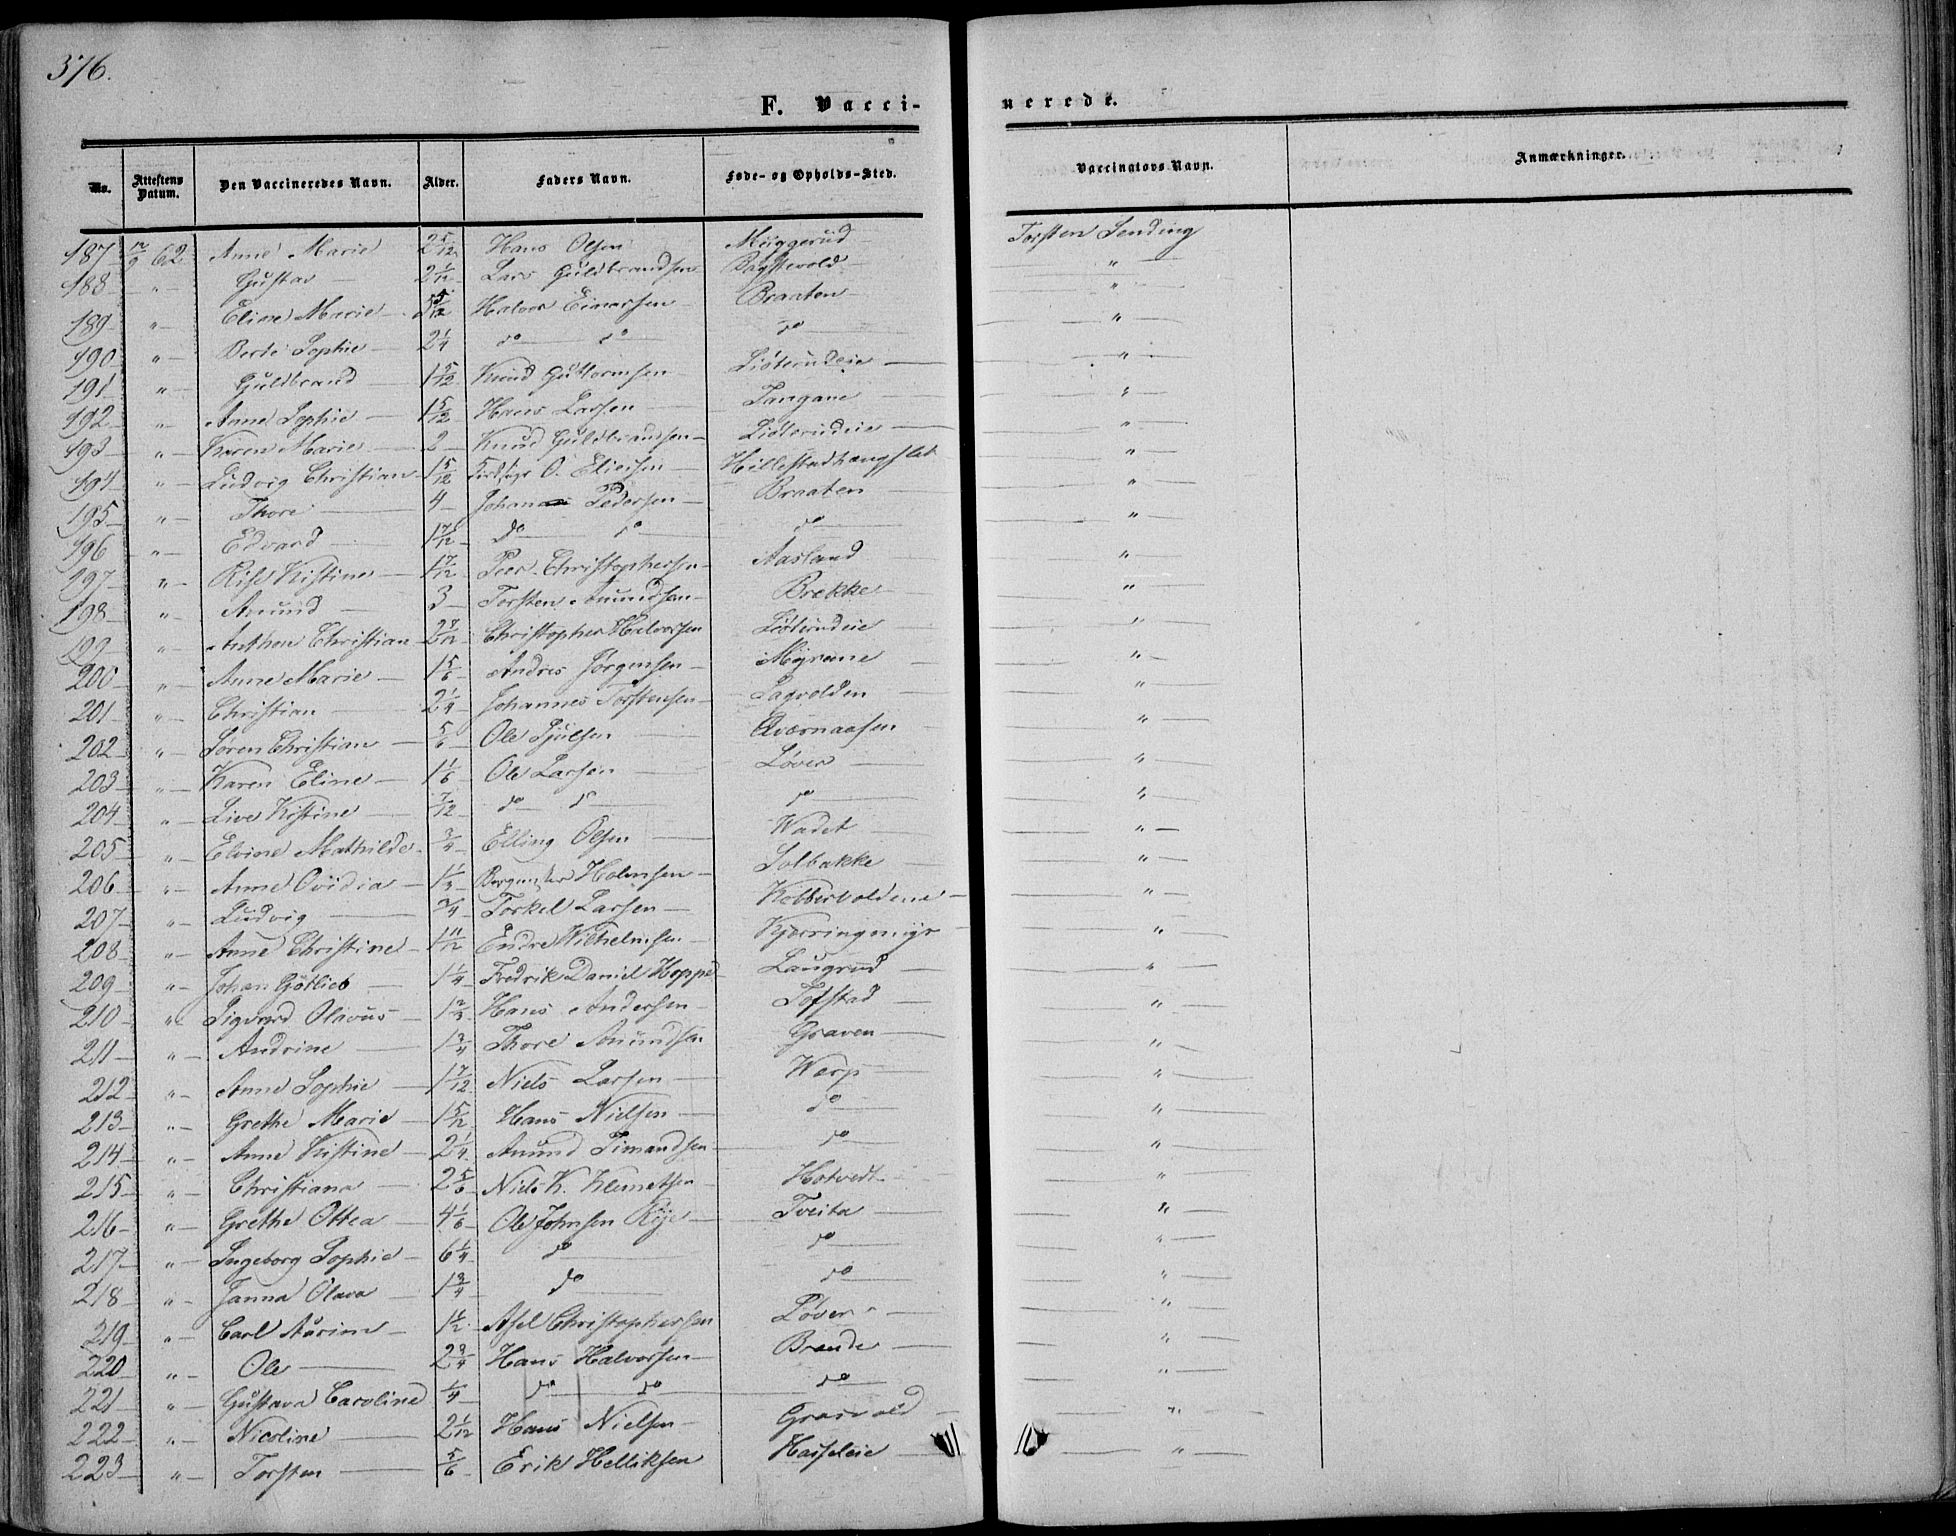 376.
F. Vacci- nerede.
No. Attestens Datum. Den Vaccineredes Navn. Alder. Faders Navn. Føde- og Opholds-Sted. Vaccinators Navn. Anmærkninger.
187 12/9 62 Anne Marie 2 5/12 Hans Olsen Muggerud Torsten Lending
188 " Gustav 2 1/12 Lars Guldbrandsen Bagstevold "
189 " Eline Marie 5/12 Halvor Einarssen Braaten "
190 " Berte Sophie 2 1/4 do do do "
191 " Guldbrand 1 5/12 Knud Guttormsen Listerudeie "
192 " Anne Sophie 1 5/12 Hans Larsen Tangane "
193 " Karen Marie 2 Knud Guldbrandsen Listerudeie "
194 " Ludvig Christian 1 5/12 O. Eliesen Hillestadhængslet "
195 " Thore 4 Johan Pedersen Braaten "
196 " Edvard 1 7/12 do do do "
297 " Rise Kistine 1 7/12 Peer Christophersen Aasland "
198 " Anund 3 Torsten Anundsen Brekke "
199 " Anthon Christian 2 7/12 Christopher Halvorsen Listerudeie "
200 " Anne Marie 1 5/6 Andres Jørgensen Myrene "
201 " Christian 2 1/4 Johannes Torstensen Lagvolden "
202 " Soren Christian 5/6 Ole Pjulsen Qværnaasen "
203 " Karen Eline 1 1/6 Ole Larsen Løver "
204 " Live Kistine 7/12 do do do "
205 " Elvine Mathilde 3/4 Elling Olsen Wadet "
206 " Anne Ovidia 1 1/3 Holmsen Solbakke "
207 " Ludvig 3/4 Torkel Larsen Kobbervoldene "
208 " Anne Christine 1 11/12 Endre Wilhelmsen Kjærringmyr "
209 " Johan Gotlieb 1 1/4 Fredrik Daniel Hoppe Laugrud "
210 " Sigvard Olavus 1 2/3 Hans Andersen Tofstad "
211 " Andrine 1 3/4 Thore Anundsen Graven "
212 " Anne Sophie 1 7/12 Niels Larsen Werp "
213 " Grethe Marie 1 5/12 Hans Nielsen do "
214 " Anne Kistine 2 1/4 Anund Simandsen do "
215 " Christiana 2 5/6 Niels K. Klemetsen Hotvedt "
216 " Grethe Ottea 4 1/6 Ole Johnsen Rye Tveita "
217 " Ingeborg Sophie 6 1/4 do do "
218 " Janna Olava 1 3/4 do do "
219 " Carl Aurim 1 1/2 Asel Christophersen Løver "
220 " Ole 2 3/4 Hans Halvorsen Brende "
221 " Gustava Caroline 1/4 do do do "
222 " Nicoline 2 1/12 Hans Nielsen Grosvold "
223 " Torsten 5/6 Erik Helliksen Hasseleie "